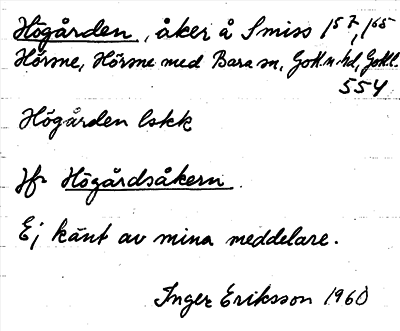 Högården, åker å Smiss 1⁵⁷, 1⁶⁵
Hörsne, Hörsne med Bara sn, Gotl. n. hd, Gotl.
554
Högården lskk
Jfr Högårdsåkern.
Ej känt av mina meddelare.
Inger Eriksson 1960